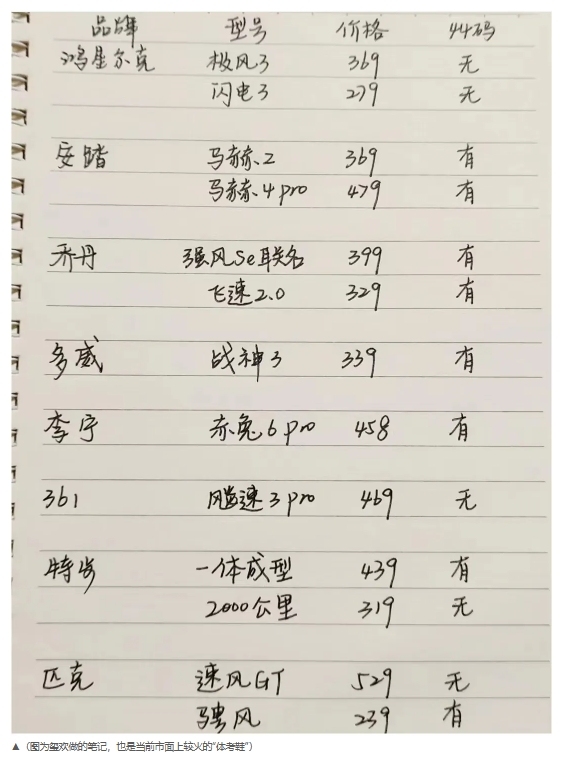 品牌 型号 价格 44码
鸿星尔克 极风3 369 无
闪电3 279 无
安踏 马赫.2 369 有
马赫.4pro 479 有
乔丹 强风Se联名 399 有
飞速2.0 329 有
多威 战神3 339 有
李宁 赤兔6pro 458 有
361 飚速3pro 469 无
特步 一体成型 439 有
2000公里 319 无
匹克 速风GT 529 无
骋风 239 有
▲（图为玺欢做的笔记，也是当前市面上较火的“体考鞋”）